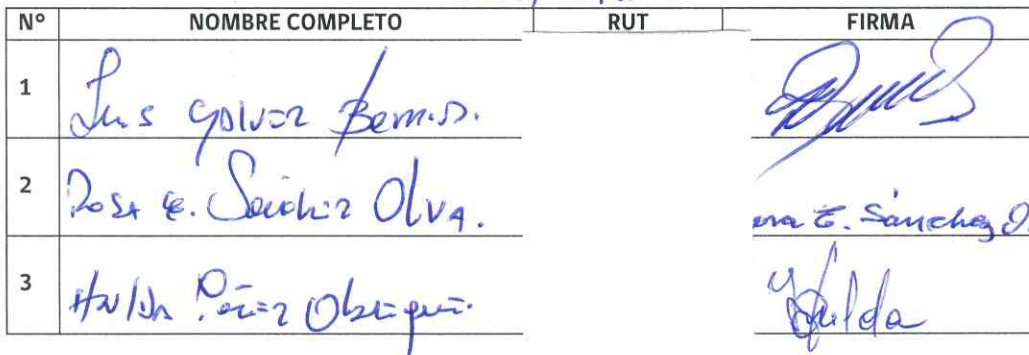 N° NOMBRE COMPLETO RUT FIRMA
1 Luis Galvez
2 Rosa E. Sánchez Oliva. E. Sánchez O.
3 Hulda Pérez Hulda